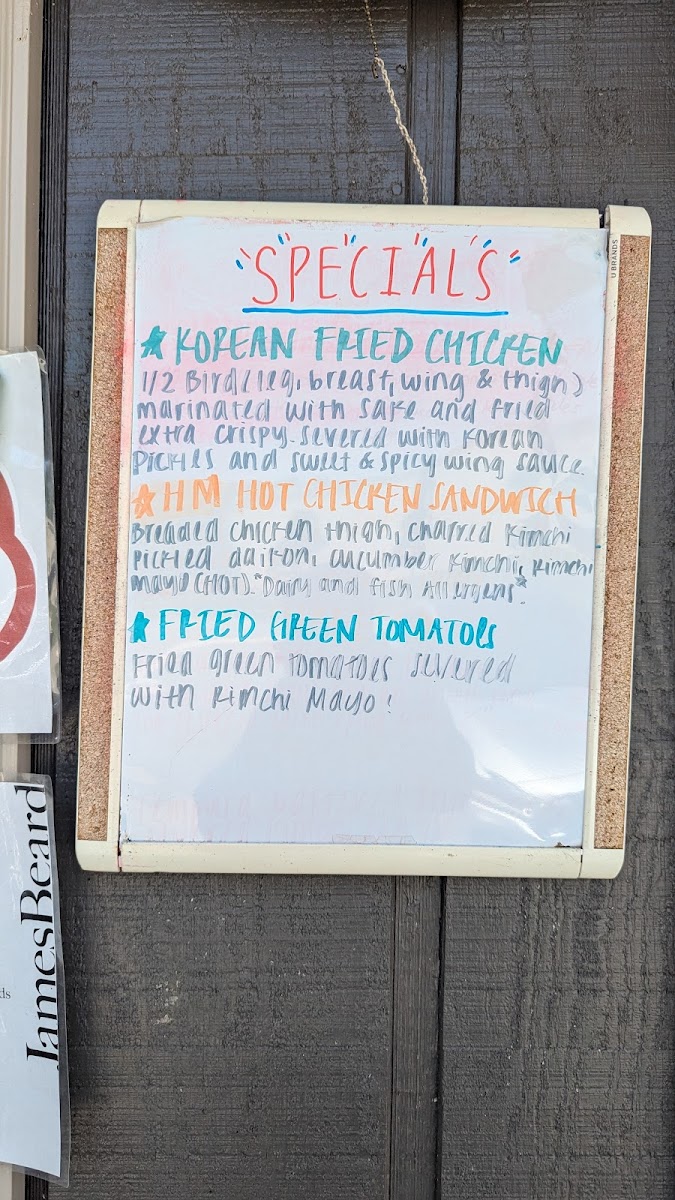 "SPECIALS"
U BRANDS
★ KOREAN FRIED CHICKEN
1/2 Bird (leg, breast, wing & thigh)
marinated with sake and fried
extra crispy. Severed with Korean
Pickles and sweet & spicy wing sauce
★ HM HOT CHICKEN SANDWICH
Breaded chicken thigh, charred Kimchi
Pickled daikon, cucumber Kimchi, Kimchi
mayo (HOT). *Dairy and fish Allergens*
★ FRIED GREEN TOMATOES
Fried green tomatoes severed
with Kimchi Mayo!
JamesBeard
ds